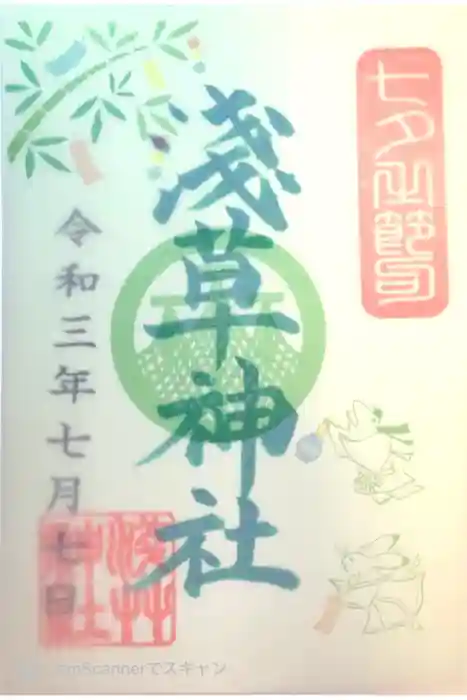 七夕之節句
淺草神社
令和三年七月七日
淺草
神社
mScannerでスキャン